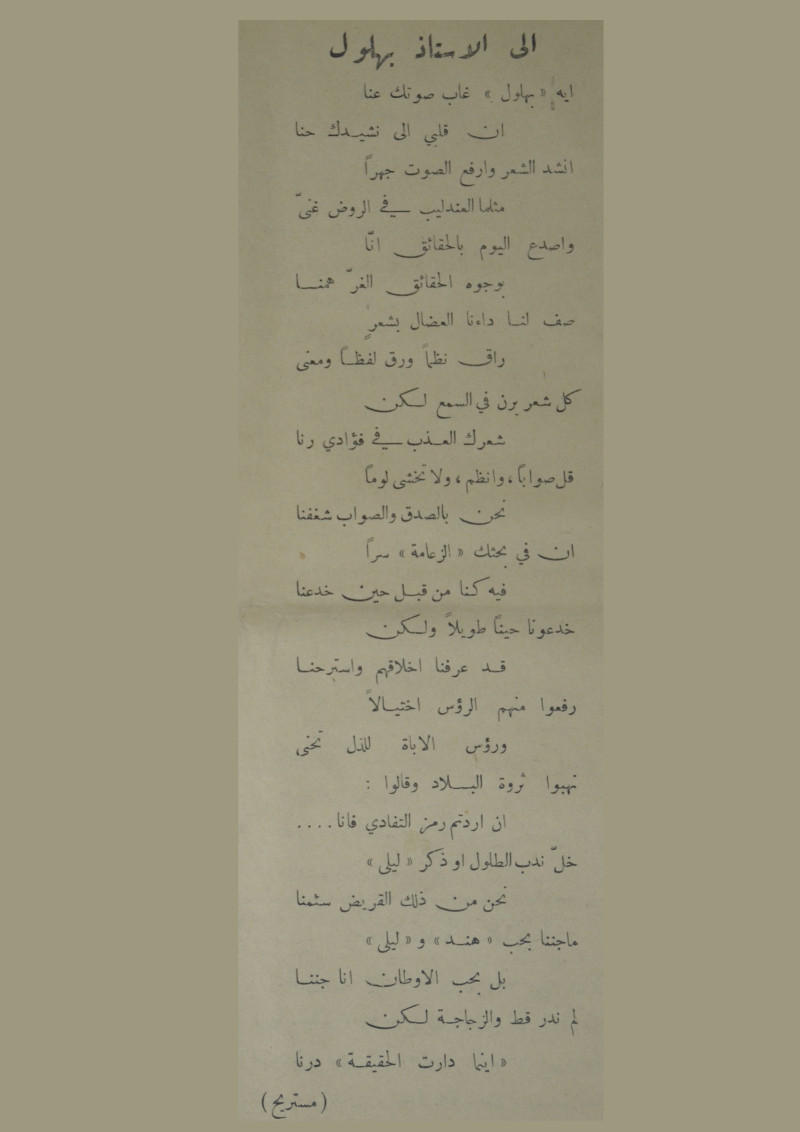 الى الاستاذ بهلول
ايه «بهلول» غاب صوتك عنا
ان قلبي الى نشيدك حنا
انشد الشعر وارفع الصوت جهراً
مثلما العندليب في الروض غنىّ
واصدع اليوم بالحقائق انّا
بوجوه الحقائق الغرّ همنا
صف لنا داءنا العضال بشعرٍ
راق نظماً ورق لفظاً ومعنى
كل شعر يرن في السمع لكن
شعرك العذب في فؤادي رنا
قل صواباً، وانظم، ولا تخشى لوماً
نحن بالصدق والصواب شغفنا
ان في بحثك «الزعامة» سراً
فيه كنا من قبل حين خدعنا
خدعونا حيناً طويلاً ولكن
قد عرفنا اخلاقهم واسترحنا
رفعوا منهم الرؤس اختيالاً
ورؤس الاباة للذل تحنى
نهبوا ثروة البلاد وقالوا :
ان اردتم رمز التفادي فانا....
خلّ ندب الطلول او ذكر «ليلى»
نحن من ذلك القريض سئمنا
ماجننا بحب «هند» و «ليلى»
بل بحب الاوطان انا جننا
لم ندر قط والزجاجة لكن
«اينما دارت الحقيقة» درنا
(مستريح)